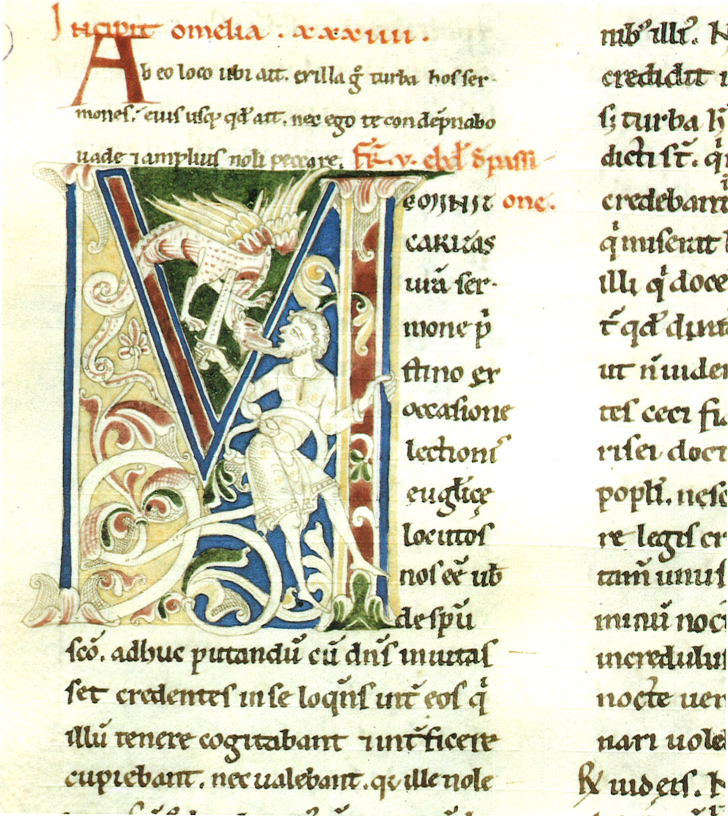 Incipit omelia . xxxiiii .
Ab eo loco ubi ait. ex illa g̊ turba hos ser-
mones. eius usq; qd̄ ait. nec ego te condēpnabo
uade ⁊ amplius noli peccare. F̄r̄. v.
M
one.
caritas
uīa ser-
mone p̄
stino ex
occasione
lectionis
euglice
locutos
nos eē ub̄
sc̄o. adhuc putandū cū dn̄s inuitas
set credentes in se loqn̄s int̄ eos q̄
illū tenere cogitabant ⁊ int̄ficere
cupiebant. nec ualebant. q̄ ille nole
nib; illi.
credidit
s; turba
dicti st̄.
credebant
q̄ miserat
illi q̄ doce
t̄ qd̄
ut n̄ uide
tes ceci
risei doct
popli. nesc
re legis cr
tam unus
minū noct
incredulu
nocte uer
nari uole
iudeis.